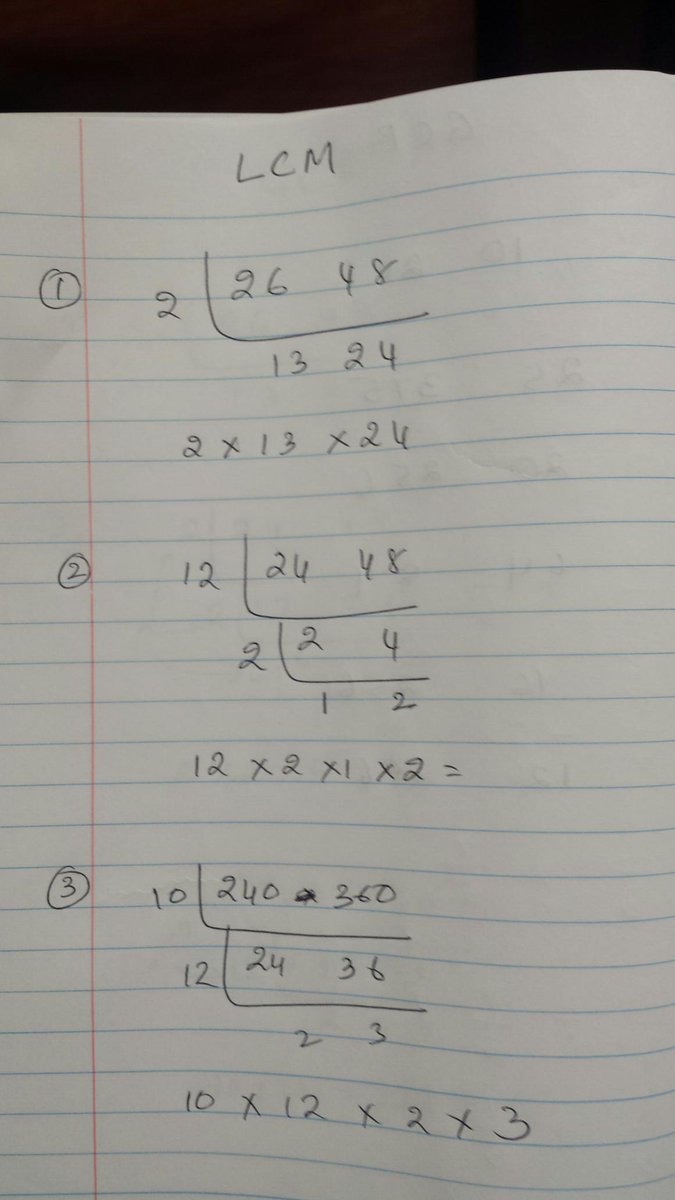 LCM
① 2 26 48
13 24
2 × 13 × 24
② 12 24 48
2 2 4
1 2
12 × 2 × 1 × 2 =
③ 10 240 360
12 24 36
2 3
10 × 12 × 2 × 3